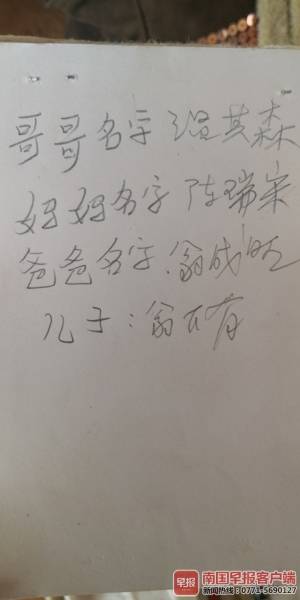 哥哥名字温其森
妈妈名字陈瑞宋
爸爸名字:翁成旺
儿子:翁不有
早报 南国早报客户端
新闻热线:0771-5690127